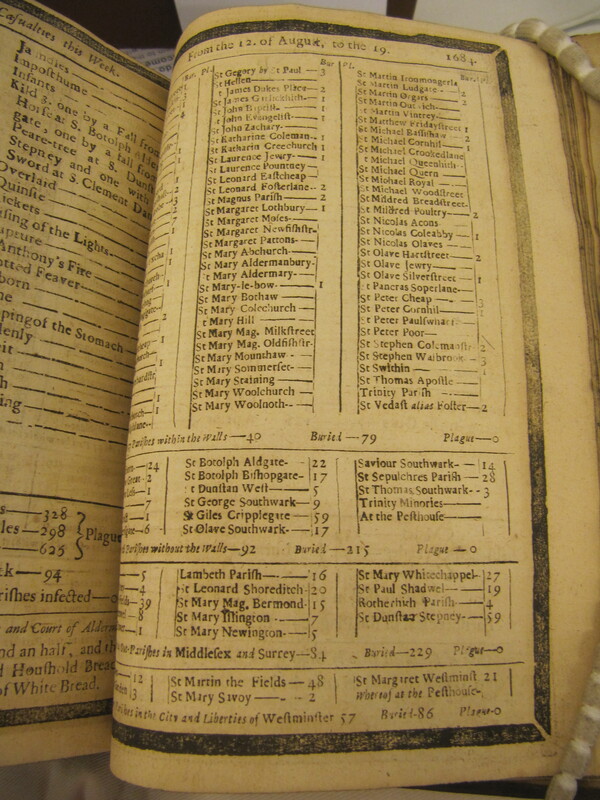 Casualties this Week.
Imposthume
Infants
Kild 3. one by a Fall from
Horse at S. Botolph Alde
gate, one by a fall from
Peare-tree at S. Dunst
Stepney and one with
Sword at S. Clement Dan
Overlaid
Quinsie
ckets
sing of the Lights
upture
Anthony's Fire
otted Feaver
born
ne
pping of the Stomach
denly
it
h
ing
s—328
les—298
—625
Plague
k—94
rishes infected—0
and Court of Alderm
nd an half, and the
d Houshold Bread
of White Bread.
From the 12. of August, to the 19. 1684.
Bur. Pl.
St Gegory by St Paul—3
St Hellen—
t James Dukes Place—2
St John Baptist—
St John Evangelist—1
St John Zachary—
St Katharine Coleman—1
St Katharin Creechurch 1
St Laurence Jewry—1
St Laurence Pountney—
St Leonard Eastcheap
St Leonard Fosterlane—2
St Magnus Parish—2
St Margaret Lothbury—1
St Margaret Moses—
St Margaret Newfishstr.
St Margaret Pattons—
St Mary Abchurch—
St Mary Aldermanbury-
St Mary Aldermary—
St Mary-le-bow—1
St Mary Bothaw—
St Mary Colechurch—
t Mary Hill—
St Mary Mag. Milkstreet
St Mary Mag. Oldfishstr-
St Mary Mounshaw—
St Mary Sommerset—
St Mary Staining—
St Mary Woolchurch—
St Mary Woolnoth—
St Martin Ironmongerla
St Martin Ludgate—2
St Martin Orgars—2
St Martin Outwich—
St Martin Vintrey—
St Matthew Fridaystreet 1
St Michael Bassishaw—2
St Michael Cornhil—1
St Michael Crookedlane
St Michael Queenhith—
St Michael Quern—
St Michael Royal—
St Michael Woodstreet
St Mildred Breadstreet-
St Mildred Poultry—2
St Nicolas Acons—
St Nicolas Coleabby—1
St Nicolas Olaves—
St Olave Hartstreet—2
St Olave Jewry—
St Olave Silverstreet—1
t Pancras Soperlane—
St Peter Cheap—3
St Peter Cornhil—1
St Peter Paulswharf—
St Peter Poor—
St Stephen Colemanstr-
St Stephen Walbrook—3
St Swithin—1
St Thomas Apostle—
Trinity Parish—
St Vedast alias Foster—2
Parishes within the Walls—40 Buried—79 Plague—0
St Botolph Aldgate—22
St Botolph Bishopgate—17
t Dunstan West—5
St George Southwark—9
St Giles Cripplegate—59
St Olave Southwark—17
Saviour Southwark—14
St Sepulchres Parish—28
St Thomas Southwark—3
Trinity Minories—
At the Pesthouse—
Parishes without the Walls—92 Buried—215 Plague—0
Lambeth Parish—16
St Leonard Shoreditch-20
St Mary Mag. Bermond-15
St Mary Islington—7
St Mary Newington—5
St Mary Whitechappel-27
St Paul Shadwel—19
Rotherhith Parish—4
St Dunstan Stepney—59
Parishes in Middlesex and Surrey—84 Buried—229 Plague—0
St Martin the Fields—48
St Mary Savoy—2
St Margaret Westminst 21
Whereof at the Pesthouse-
rishes in the City and Liberties of Westminster 57 Buried-86 Plague-0